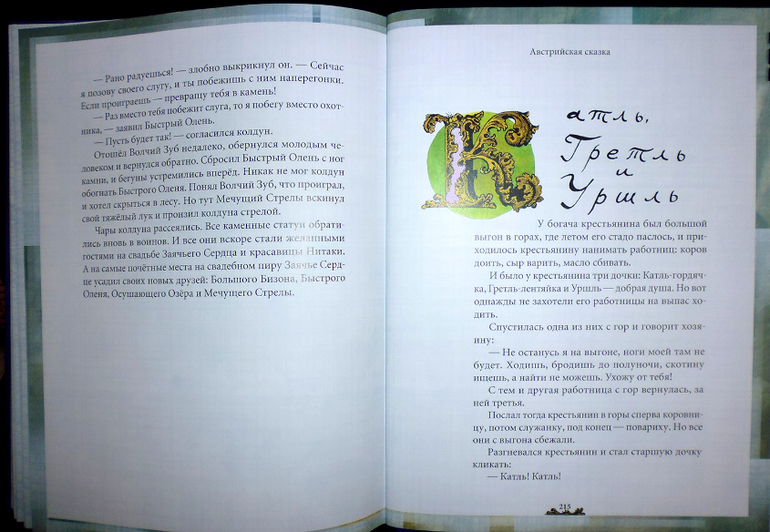 — Рано радуешься! — злобно выкрикнул он. — Сейчас
я позову своего слугу, и ты побежишь с ним наперегонки.
Если проиграешь — превращу тебя в камень!
— Раз вместо тебя побежит слуга, то я побегу вместо охот-
ника, — заявил Быстрый Олень.
— Пусть будет так! — согласился колдун.
Отошёл Волчий Зуб недалеко, обернулся молодым че-
ловеком и вернулся обратно. Сбросил Быстрый Олень с ног
камни, и бегуны устремились вперёд. Никак не мог колдун
обогнать Быстрого Оленя. Понял Волчий Зуб, что проиграл,
и хотел скрыться в лесу. Но тут Мечущий Стрелы вскинул
свой тяжёлый лук и пронзил колдуна стрелой.
Чары колдуна рассеялись. Все каменные статуи обрати-
лись вновь в воинов. И все они вскоре стали желанными
гостями на свадьбе Заячьего Сердца и красавицы Нитаки.
А на самые почётные места на свадебном пиру Заячье Серд-
це усадил своих новых друзей: Большого Бизона, Быстрого
Оленя, Осушающего Озёра и Мечущего Стрелы.
Австрийская сказка
Катль,
Гретль
и
Уршль
У богача крестьянина был большой
выгон в горах, где летом его стадо паслось, и при-
ходилось крестьянину нанимать работниц: коров
доить, сыр варить, масло сбивать.
И было у крестьянина три дочки: Катль-гордяч-
ка, Гретль-лентяйка и Уршль — добрая душа. Но вот
однажды не захотели его работницы на выпас хо-
дить.
Спустилась одна из них с гор и говорит хозя-
ину:
— Не останусь я на выгоне, ноги моей там не
будет. Ходишь, бродишь до полуночи, скотину
ищешь, а найти не можешь. Ухожу от тебя!
С тем и другая работница с гор вернулась, за
ней третья.
Послал тогда крестьянин в горы сперва коровни-
цу, потом служанку, под конец — повариху. Но все
они с выгона сбежали.
Разгневался крестьянин и стал старшую дочку
кликать:
— Катль! Катль!
215